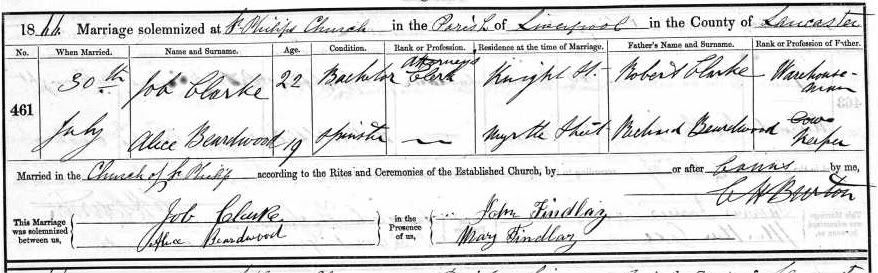 1866. Marriage solemnized at St Philips Church in the Parish of Liverpool in the County of Lancaster
No. When Married. Name and Surname. Age. Condition. Rank or Profession. Residence at the time of Marriage. Father's Name and Surname. Rank or Profession of Father.
461 30th July
Job Clarke 22 Bachelor Attorneys Clerk Knight St. Robert Clarke Warehouse-man
Alice Beardwood 19 Spinster — Myrtle Street Richard Beardwood Cow Keeper
Married in the Church of St Philip according to the Rites and Ceremonies of the Established Church, by or after Banns by me,
C H Burton
This Marriage was solemnized between us,
Job Clarke
Alice Beardwood
in the Presence of us,
John Findlay
Mary Findlay